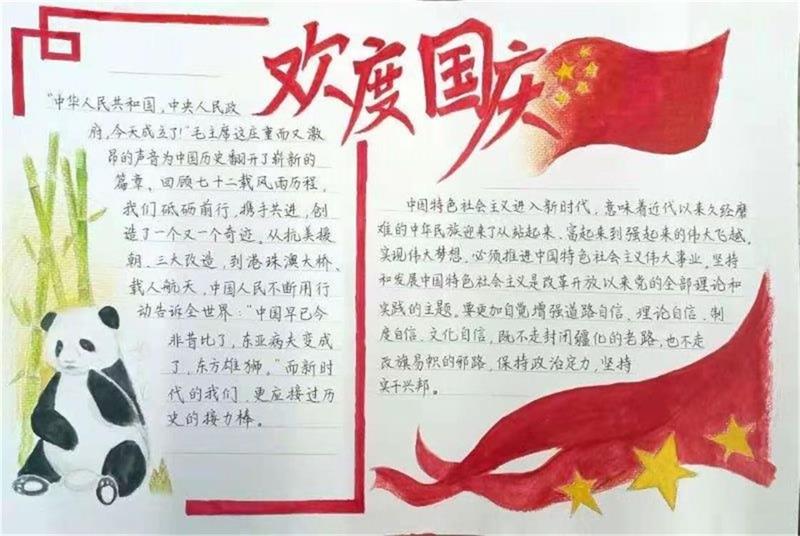 欢度国庆
"中华人民共和国,中央人民政
府,今天成立了!"毛主席这庄重而又激
昂的声音为中国历史翻开了崭新的
篇章、回顾七十二载风雨历程,
我们砥砺前行,携手共进,创
造了一个又一个奇迹。从抗美援
朝、三大改造,到港珠澳大桥、
载人航天,中国人民不断用行
动告诉全世界:"中国早已今
非昔比了,东亚病夫变成
了,东方雄狮。"而新时
代的我们,更应接过历
史的接力棒。
中国特色社会主义进入新时代,意味着近代以来久经磨
难的中华民族迎来了从站起来、富起来到强起来的伟大飞越,
实现伟大梦想,必须推进中国特色社会主义伟大事业。坚持
和发展中国特色社会主义是改革开放以来党的全部理论和
实践的主题。要更加自觉增强道路自信、理论自信、制
度自信、文化自信,既不走封闭僵化的老路,也不走
改旗易帜的邪路,保持政治定力,坚持
实干兴邦。